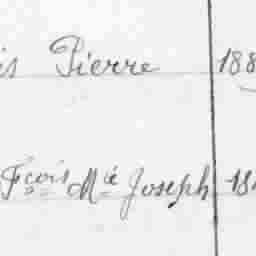 is Pierre 188
Fçois Mie Joseph 18